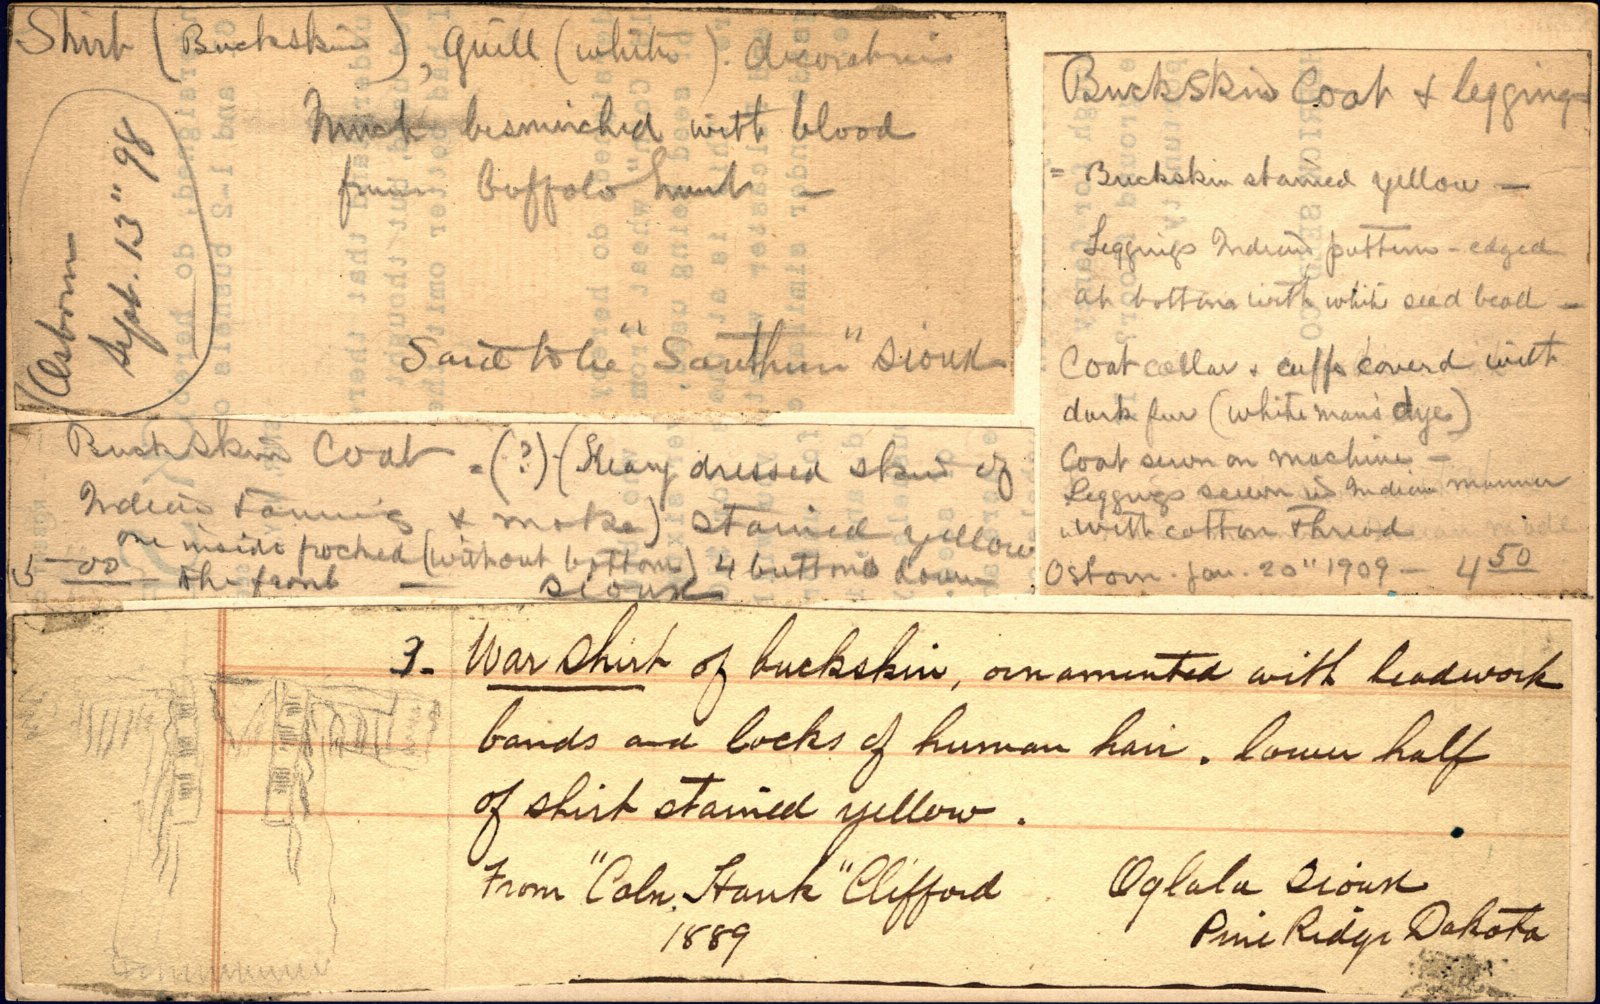 Shirt (Buckskin), Quill (white) decoration
Much besmirched with blood
from buffalo hunt -
Said to be "Southern" Sioux
(Osborn
Sept. 13" 98
Buckskin Coat & leggings
" Buckskin stained yellow -
Leggings Indian pattern - edged
at bottom with white seed bead -
Coat collar & cuffs coverd with
dark fur (white man's dye)
Coat sewn on machine -
Leggings sewn in Indian manner
with cotton thread
Osborn. Jan. 20" 1909 - 4 50
Buckskin Coat - (?) (Heavy dressed skin of
Indian tanning & make) stained yellow
one inside pocked (without bottom) 4 buttons down
5 00 the front - Sioux
3- War Shirt of buckskin, ornamented with beadwork
bands and locks of human hair. lower half
of shirt stained yellow.
From "Coln. Hank" Clifford Oglala Sioux
1889 Pine Ridge Dakota